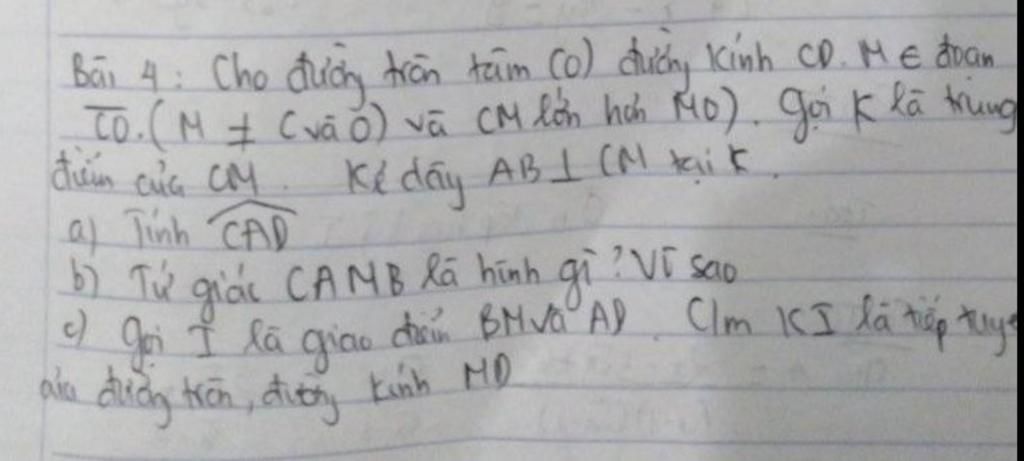 Bài 4: Cho đường tròn tâm (O) đường kính CD. M ∈ đoạn
CO. (M ≠ C và O) và CM lớn hơn MO). Gọi K là trung
điểm của CM. Kẻ dây AB ⊥ CM tại K.
a) Tính CAD
b) Tứ giác CAMB là hình gì? Vì sao
c) Gọi I là giao điểm BM và AD. C/m KI là tiếp tuyế
của đường tròn, đường kính MD